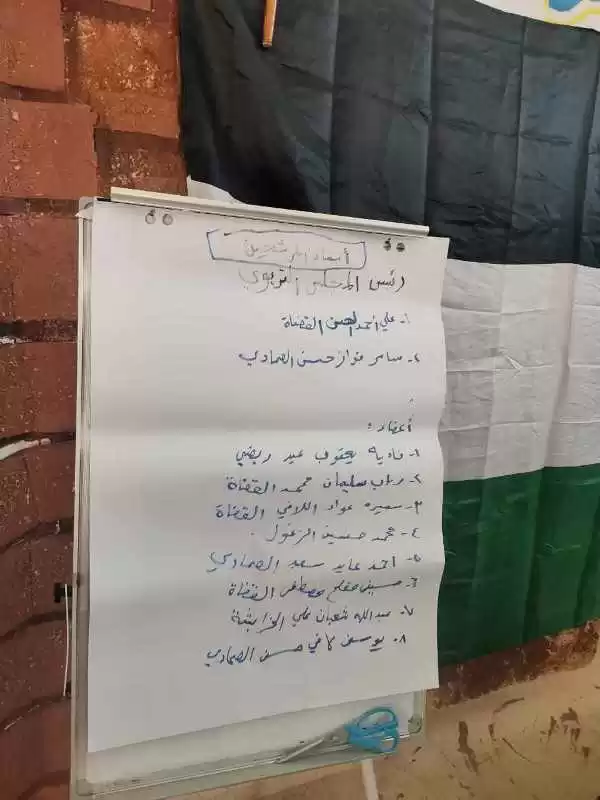 أسماء المرشحين
رئيس المجلس التربوي
١- علي احمد الحسن القضاة
٢- سامر فواز حسن الصمادي
أعضاء:
١- فادية يعقوب عيد ربضي
٢- رباب سليمان محمد القضاة
٣- سميره عواد اللافي القضاة
٤- محمد حسين الزغول.
٥- احمد عايد سعد الصمادي
٦- حسين مفلح مصطفى القضاة
٧- عبدالله شعبان علي الخرابشة
٨- يوسف كافي حسن الصمادي